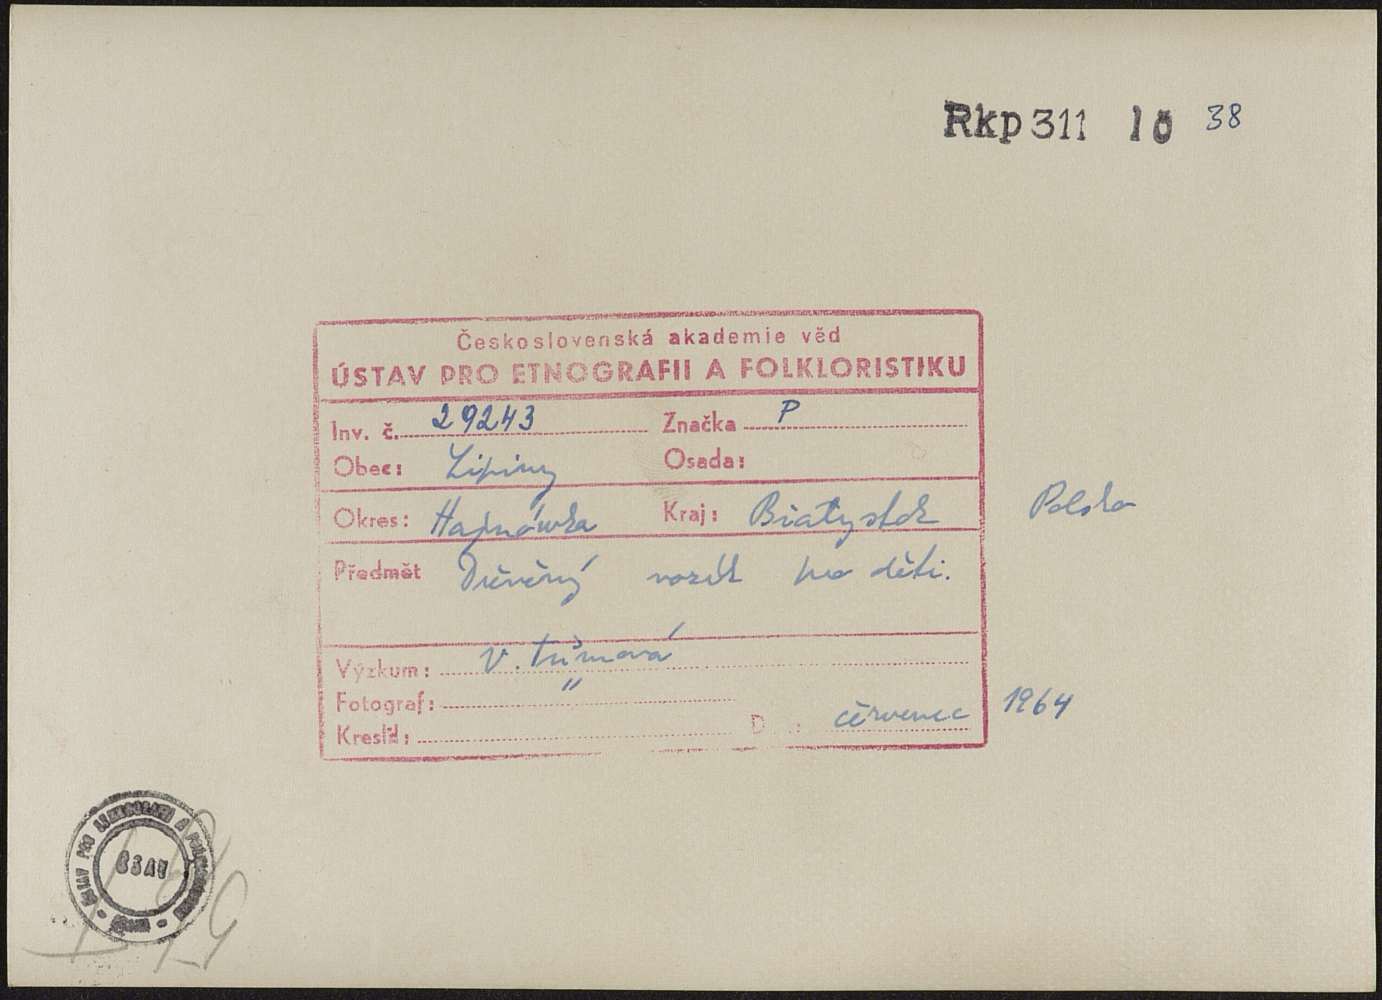 Rkp 311 10 38
Československá akademie věd
ÚSTAV PRO ETNOGRAFII A FOLKLORISTIKU
Inv. č. 29243 Značka P
Obec: Lipiny Osada:
Okres: Hajnówka Kraj: Białystok Polsko
Předmět Dřevěný vozík pro děti.
Výzkum: V. Tůmová
Fotograf: "
Kreslil: D : červenec 1964
ÚSTAV PRO ETNOGRAFII A FOLKLORISTIKU
ČSAV